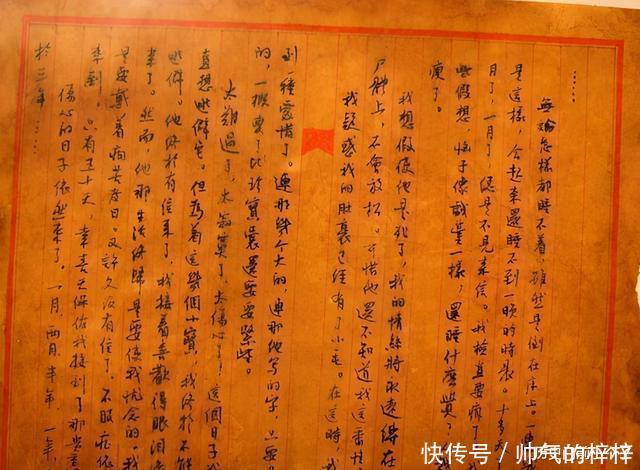 ……
無論怎樣都睡不着，雖然是倒在床上。一連
是這樣，合起來還睡不到一頓的時晨。十多天
月了，一月了，總是不見來信。我檢直要瘋了我
些假想，像戲臺一樣，還睡什麼覺？
瘦了。
我想假使他是死了，我的情絲將永遠得在
尸體上，不會放松。可惜他還不知道我這番性
我疑惑我的肚裏已經有了小毛。在這時，我
到一種愛惜了。連那幾個大的，連那他写的字，只要
的，一概要了比珍寶還要要緊些。
太難過了，太寂寞了，太傷心了，這個日子我
直想逃僻它。但為着這幾個小寶，我終於不能
逃僻。他終於有信來了，我接着喜歡得眼淚
來了。然而，他那生活終歸是要使我憂念的。我
是要戴着痛苦度日。又許久沒有信了。不敢
到 只有五十天，幸喜天保佑我接到了那些
傷心的日子依然來了。一月，兩月，半年，一年，
於三年……
快传号／帅气的梓梓